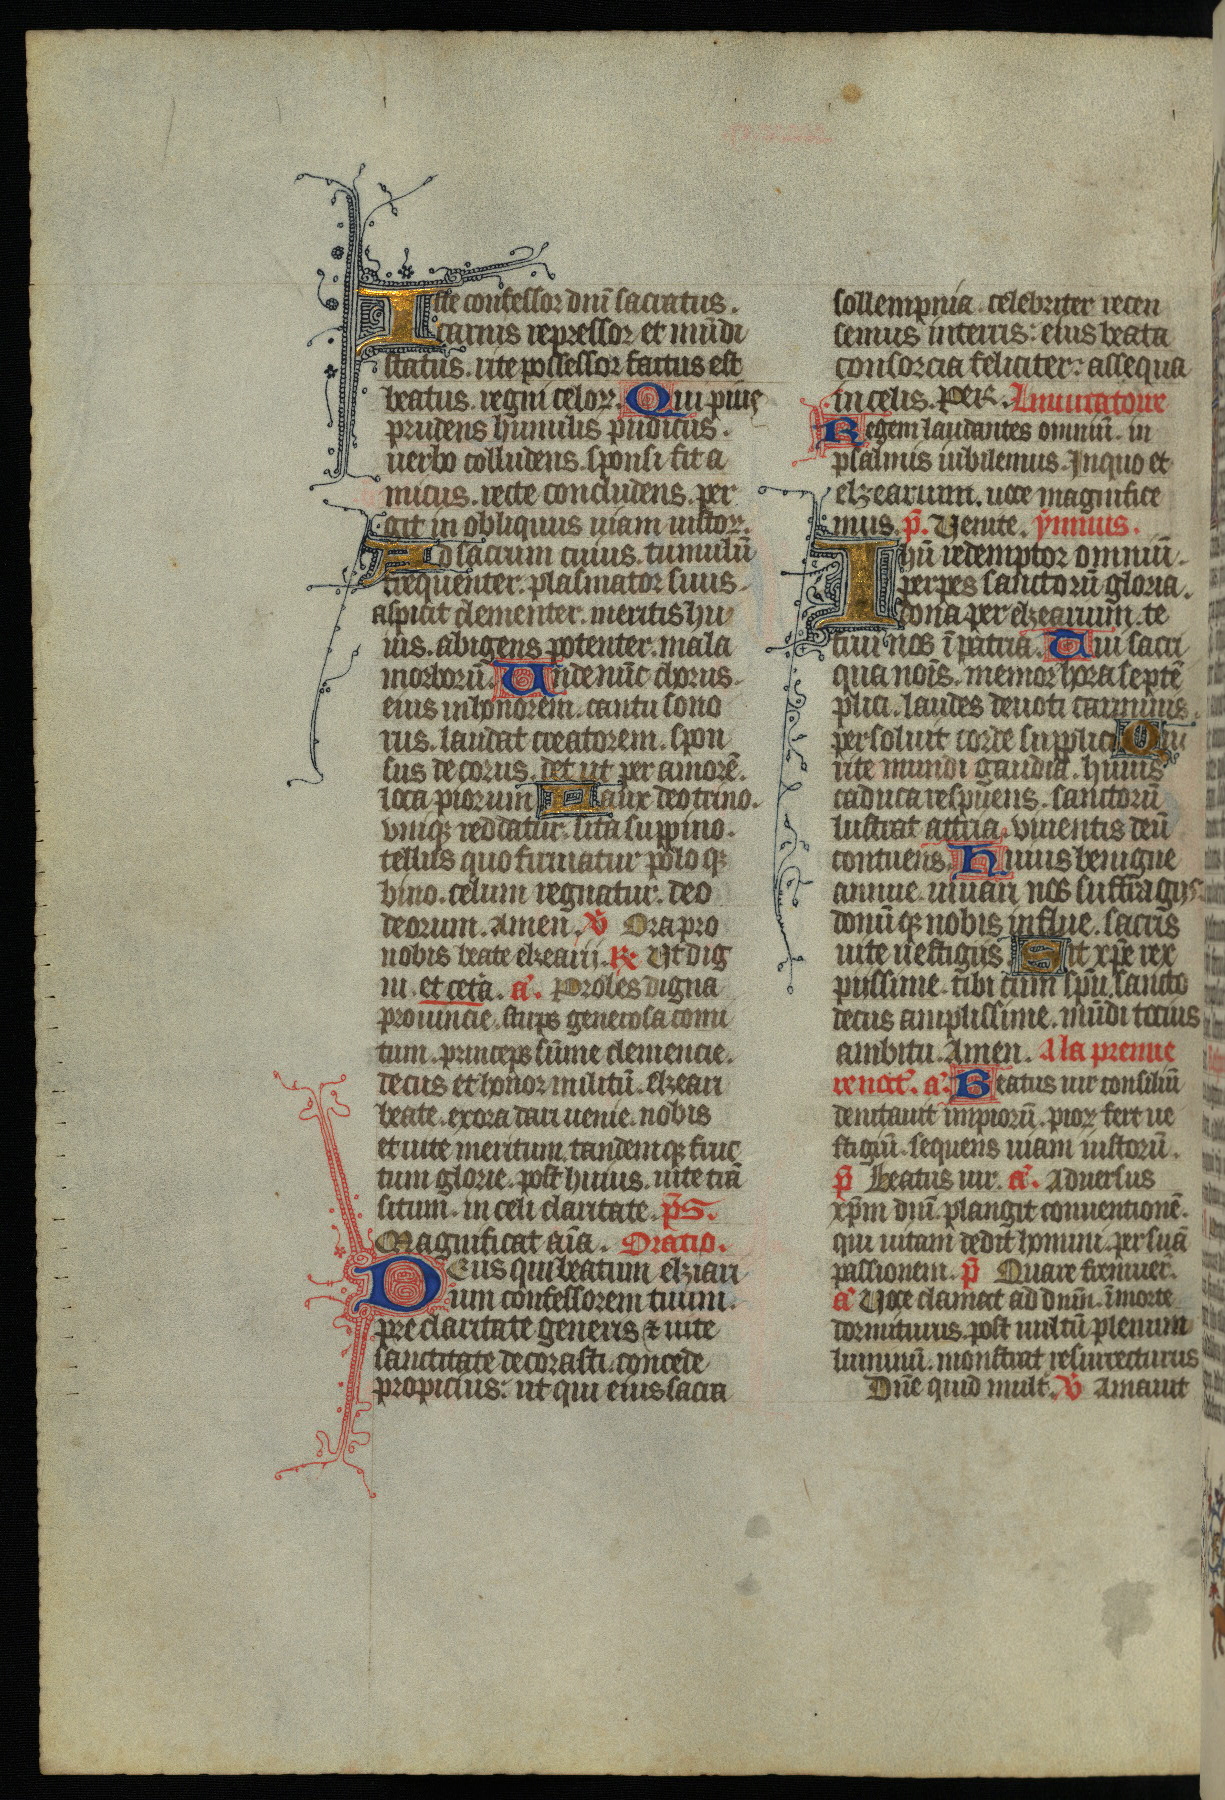 Iste confessor dnī sacratus.
carnis repressor et mūdi
status. uite possessor factus est
beatus. regni celoꝝ. Qui pius
prudens humilis pudicus.
uerbo colludens. sponsi fit a
micus. recte concludens. per
git in obliquus uiam iustoꝝ.
Ad sacrum cuius. tumulū
frequenter. plasmator suus.
aspicit clementer. meritis hu
ius. abigens potenter. mala
morborū. Unde nūc chorus.
eius in honorem. cantu sono
rus. laudat creatorem. spon
sus decorus. det ut per amorē.
loca piorum Paux deo trino.
vniqȝ reddatur. sita suppino.
tellus quo firmatur polo qȝ
bino. celum regnatur. deo
deorum. Amen. ℣ Ora pro
nobis beate elzearii. ℟ Ut dig
ni. et cetā. a͛. Proles digna
prouincie. stirps generosa comi
tum. princeps sūme clemencie.
decus et honor militū. elzeari
beate. exora dari uenie. nobis
et uite meritum. tandemqȝ fruc
tum glorie. post huius. uite trā
situm. in celi claritate. p̄s.
Magnificat aīa. Oratio.
Deus qui beatum elziari
um confessorem tuum.
preclaritate generis ⁊ uite
sanctitate decorasti. concede
propicius: ut qui eius sacra
sollempnia celebriter recen
semus in terris: eius beata
consorcia feliciter: assequa
in celis. Per. Inuitatorie
Regem laudantes omniū. in
psalmis iubilemus. In quo et
elzearium. uoce magnifice
mus. p̄. Venite. ymnus.
Ihū redemptor omniū.
perpes sanctorū gloria.
dona per elzearium. te
frui nos ī patria. Cui sacri
qua noīs. memor hora septē
plici. laudes deuoti carminis.
persoluit corde supplici Qui
uite mundi gaudia. huius
caduca respuens. sanctorū
lustrat attria. viuentis deū
contuens. Huius benigne
annue. iuuari nos suffragiis.
donūqȝ nobis influe. sacris
uite uestigiis. Sit xp̄e rex
piissime. tibi cum spū sancto
decus amplissime. mūdi tocius
ambitu. Amen. A la premie
re noct͛. a͛. Beatus uir consiliū
deuitauit impiorū. pioꝝ fert ue
stigiū. sequens uiam iustorū.
p̄ Beatus uir. a͛. Aduersus
xp̄m dnū. plangit conuentionē.
qui uitam dedit homini. per suā
passionem. p̄ Quare fremuer͛.
a͛ Uoce clamat ad dnm̄. ī morte
dormiturus. post uultū plenum
luminū. monstrat resurrecturus
Dn̄e quid mult͛. ℣ Amauit